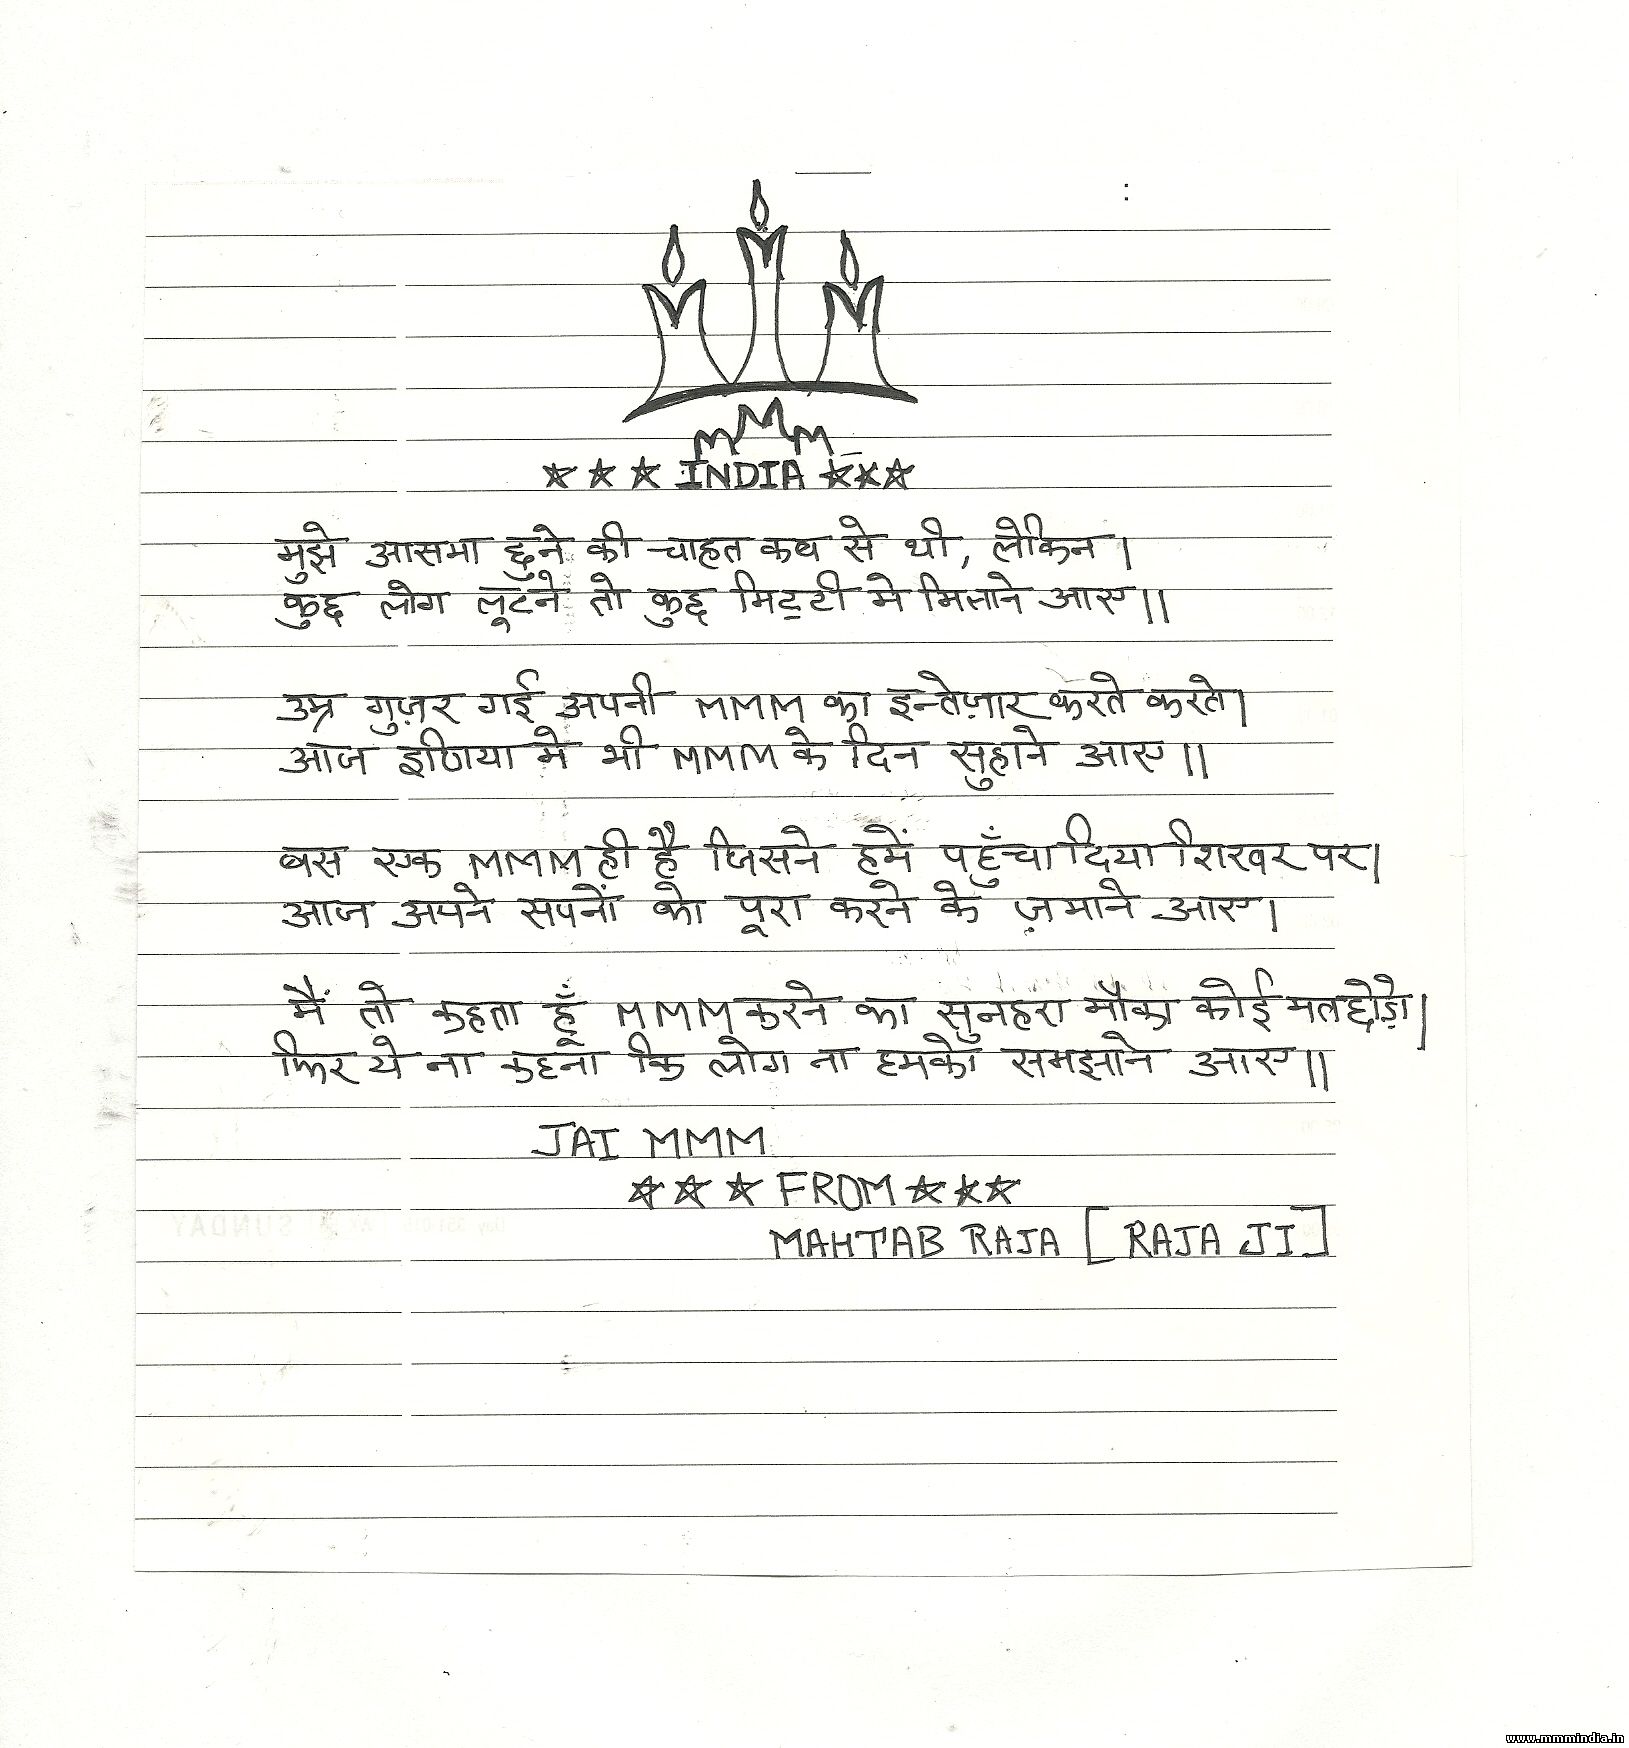 MMM
MMM
*** INDIA ***
मुझे आसमा छुने की चाहत कब से थी, लेकिन।
कुछ लोग लूटने तो कुछ मिट्टी मे मिलाने आए॥
उम्र गुज़र गई अपनी MMM का इन्तेज़ार करते करते।
आज इण्डिया मे भी MMM के दिन सुहाने आए॥
बस एक MMM ही है जिसने हमें पहुँचा दिया शिखर पर।
आज अपने सपनों को पूरा करने के ज़माने आए।
मैं तो कहता हूँ MMM करने का सुनहरा मौका कोई मत छोड़ो।
फिर ये ना कहना कि लोग ना हमको समझाने आए॥
JAI MMM
*** FROM ***
MAHTAB RAJA [RAJA JI]
www.mmmindia.in